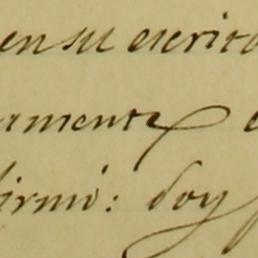 en su escrito
amente
firmó: doy